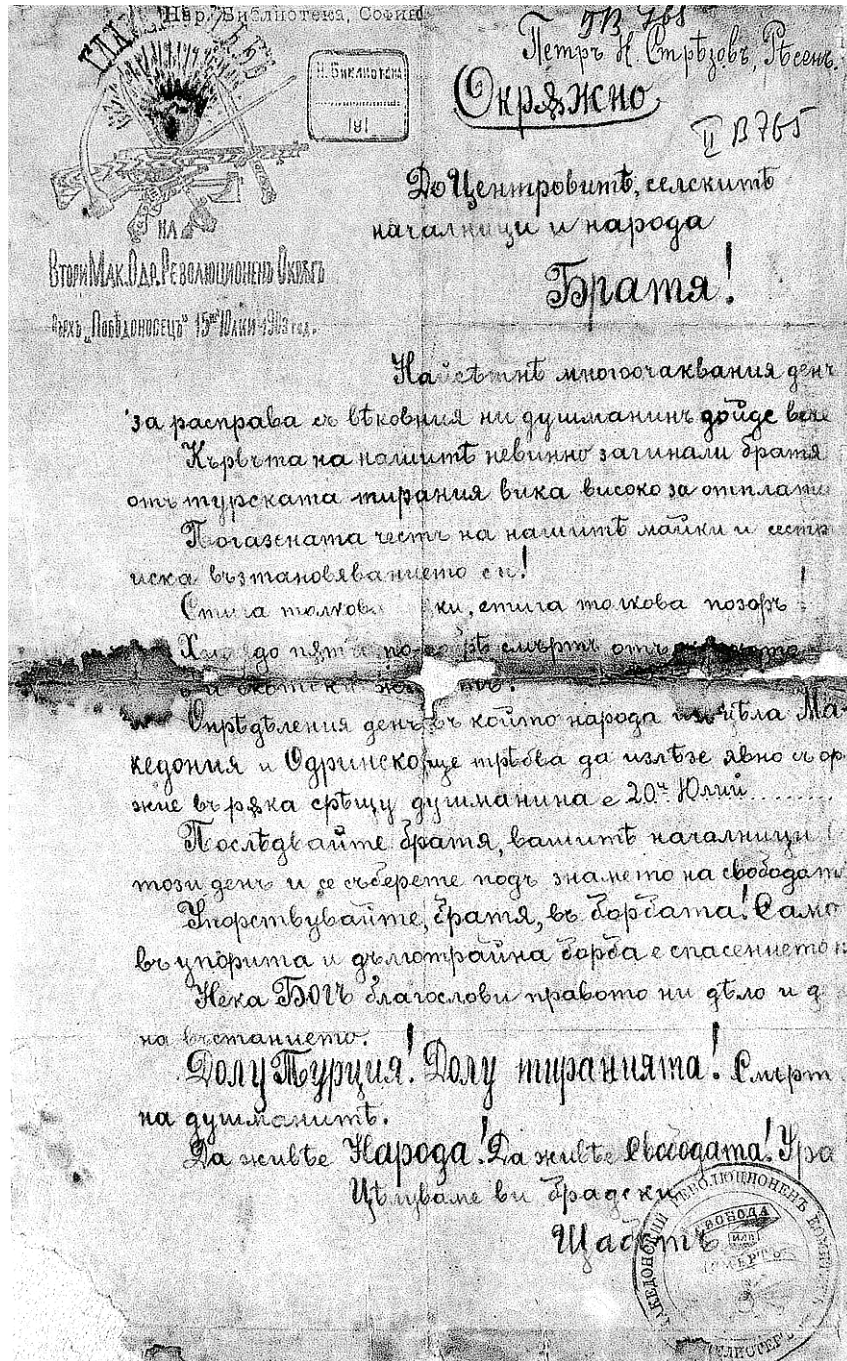 Нар. Библиотека, София
II В 765
Петръ Н. Стрѣзовъ, Рѣсенъ.
Н. Библиотека
191
Окрѫжно
II В 765
До Центровитѣ, селскитѣ
началници и народа
НА
Втори Мак. Одр. Революционенъ Окрѫгъ
Върхъ „Побѣдоносецъ" 15ий Юлий 1903 год.
Братя!
Найсѣтнѣ многоочаквания день
за расправа съ вѣковния ни душманинъ дойде вече
Кървьта на нашитѣ невинно загинали братя
отъ турската тирания вика високо за отплата
Погазената честь на нашитѣ майки и сестри
иска възтановяванието си!
Стига толкова ки, стига толкова позоръ!
до пѫти по-добрѣ смърть отъ
скотски
Опрѣдѣления день, въ който народа изъ цѣла Ма-
кедония и Одринско, ще трѣбва да излѣзе явно съ орѫ
жие въ рѫка срѣщу душманина е 20й Юлий........
Послѣдвайте братя, вашитѣ началници
този день и се съберете подъ знамето на свободата
Упорствувайте, братя, въ борбата! Само
въ упорита и дълготрайна борба е спасението
Нека БОГЪ благослови правото ни дѣло и
на въстанието.
Долу Турция! Долу тиранията! Смърт
на душманитѣ.
Да живѣе Народа! Да живѣе Свободата! Ура
Цѣлуваме ви брадски
Щабътъ
МАКЕДОНСКИЙ РЕВОЛЮЦИОНЕНЪ КОМИТЕТЪ
СВОБОДА
ИЛИ
СМЪРТЬ